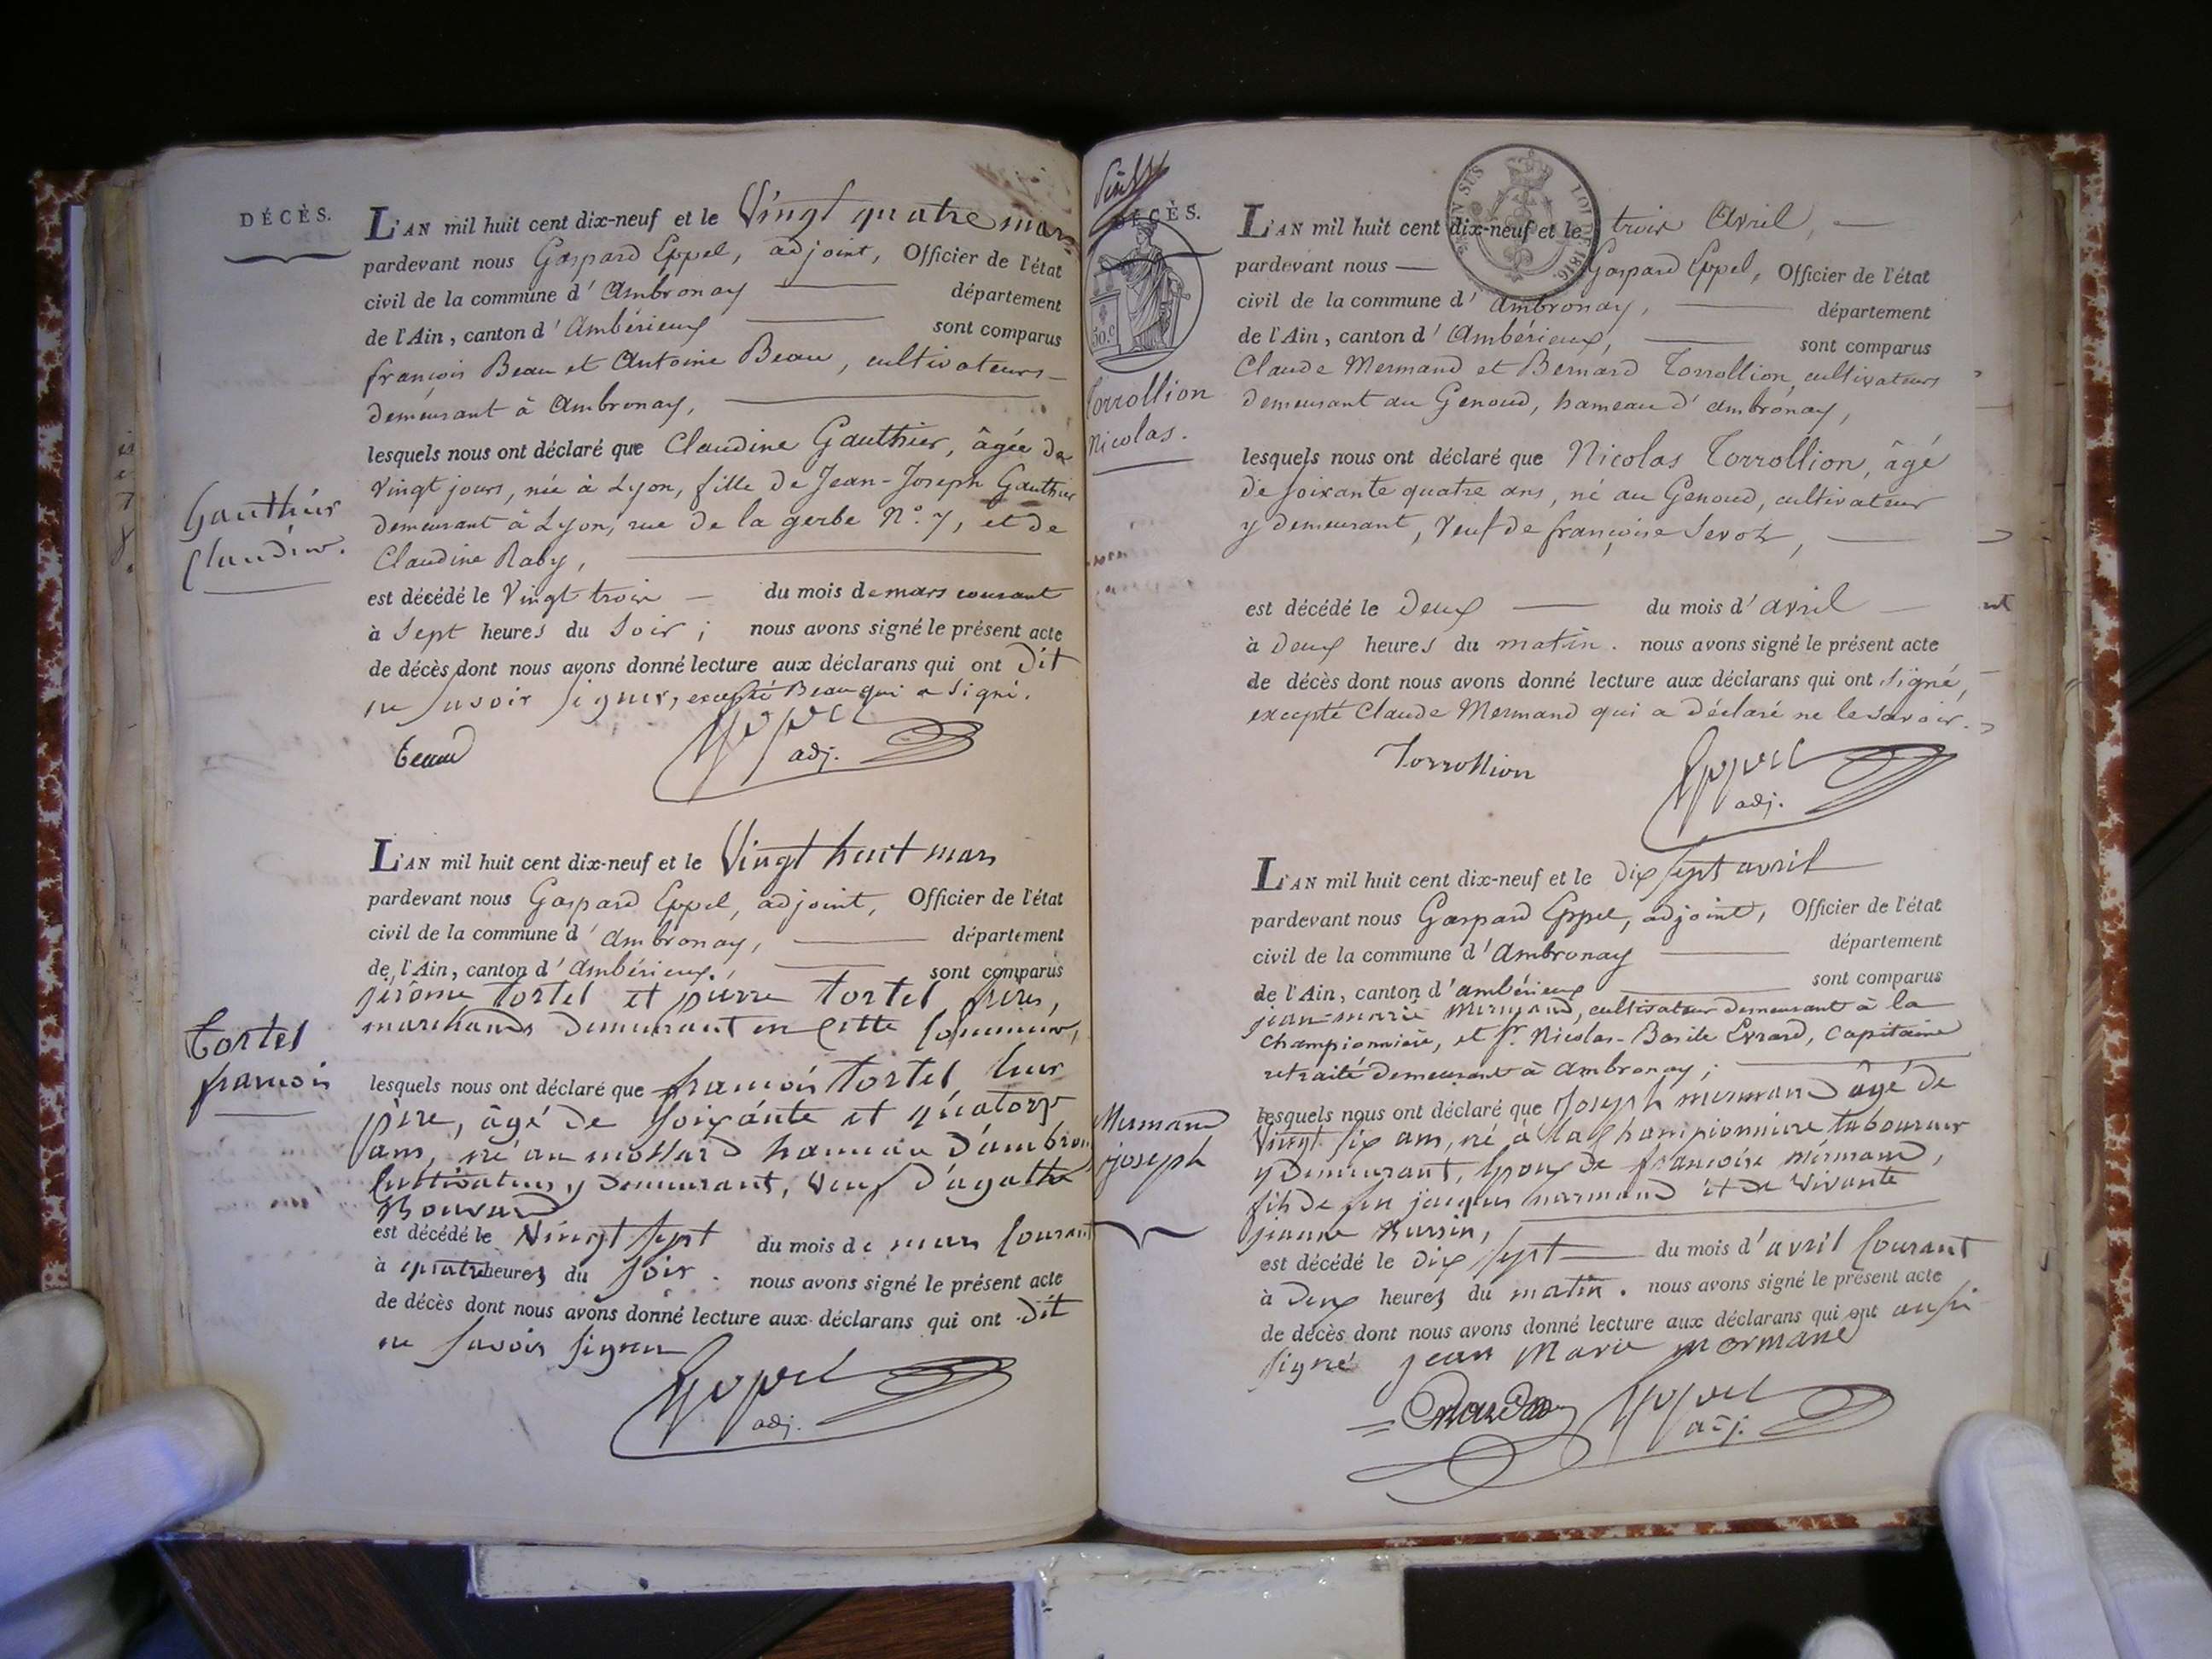 DÉCÈS.
L'AN mil huit cent dix-neuf et le Vingt quatre mars
pardevant nous Gaspard Eppel, adjoint, Officier de l'état
civil de la commune d'Ambronay département
de l'Ain, canton d'Ambérieux sont comparus
françois Beau et Antoine Beau, cultivateurs
demeurant à Ambronay,
lesquels nous ont déclaré que Claudine Gauthier, âgée de
vingt jours, née à Lyon, fille de Jean-Joseph Gauthier
demeurant à Lyon, rue de la gerbe N.º 7, et de
Claudine Raby,
est décédé le Vingt trois du mois de mars courant
à Sept heures du Soir; nous avons signé le présent acte
de décès dont nous avons donné lecture aux déclarans qui ont dit
ne savoir signer, excepté Beau qui a signé.
beau
Eppel
adj.
Gauthier
Claudine.
L'AN mil huit cent dix-neuf et le Vingt huit mars
pardevant nous Gaspard Eppel, adjoint, Officier de l'état
civil de la commune d'Ambronay, département
de l'Ain, canton d'Ambérieux, sont comparus
jérôme tortel et pierre tortel frères,
marchands demeurant en cette Commune,
lesquels nous ont déclaré que françois tortel leur
père, âgé de soixante et quatorze
ans, né au mollard hameau d'ambronay
Cultivateur y demeurant, veuf d'agathe
Bouvard
est décédé le Vingt sept du mois de mars Courant
à quatre heures du soir. nous avons signé le présent acte
de décès dont nous avons donné lecture aux déclarans qui ont dit
ne savoir signer
Eppel
adj.
tortel
francois
DÉCÈS.
50.c
LOI DE 1816.
L'AN mil huit cent dix-neuf et le trois Avril,
pardevant nous Gaspard Eppel, Officier de l'état
civil de la commune d'Ambronay, département
de l'Ain, canton d'Ambérieux, sont comparus
Claude Mermand et Bernard Torrollion, cultivateurs
demeurant au Genoud, hameau d'ambronay,
lesquels nous ont déclaré que Nicolas Torrollion, âgé
de soixante quatre ans, né au Genoud, cultivateur
y demeurant, Veuf de françoise
est décédé le deux du mois d'avril
à deux heures du matin. nous avons signé le présent acte
de décès dont nous avons donné lecture aux déclarans qui ont signé,
excepté Claude Mermand qui a déclaré ne le savoir.
Torrollion
Eppel
adj.
Torrollion
Nicolas.
L'AN mil huit cent dix-neuf et le dix sept avril
pardevant nous Gaspard Eppel, adjoint, Officier de l'état
civil de la commune d'Ambronay département
de l'Ain, canton d'ambérieux sont comparus
jean-marie Mermand, cultivateur demeurant à la
championnière, et Sr. Nicolas-Basile Evrard, Capitaine
retraité demeurant à Ambronay;
lesquels nous ont déclaré que Joseph mermand âgé de
Vingt six ans, né à la Championniere laboureur
y demeurant, Epoux de francoise mermand,
fils de feu jacques mermand et de vivante
jeanne
est décédé le dix sept du mois d'avril Courant
à deux heures du matin. nous avons signé le présent acte
de décès dont nous avons donné lecture aux déclarans qui ont aussi
signé jean Marie mermand
Eppel
adj.
Mermand
joseph